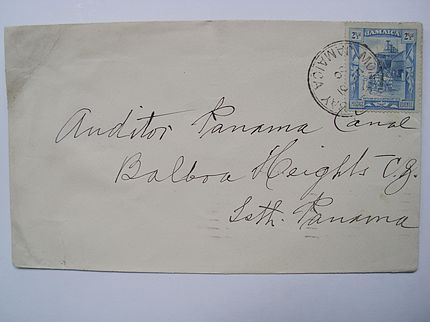 2½ JAMAICA 2½
JAMAICA
Auditor Panama Canal
Balboa Heights C.Z.
Isth. Panama